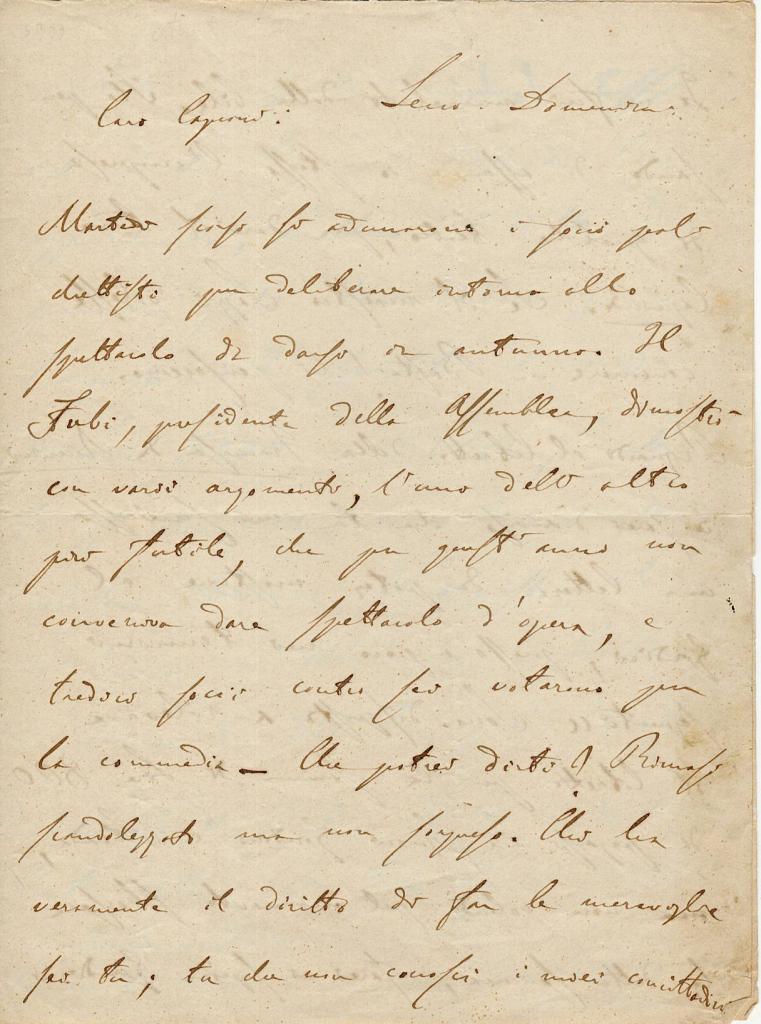 Caro Capponi: Lecco. Domenica.
Martedì scorso si adunarono i socii pal-
chettisti per deliberare intorno allo
spettacolo da darsi in autunno. Il
presidente della Assemblea, dimostrò
con varii argomenti, l'uno dell' altro
più futile, che per quest' anno non
conveniva dare spettacolo d'opera, e
tredici socii contro sei votarono per
la commedia – Che potrei dirti? Rimasi
scandolezzato ma non sorpreso. Chi ha
veramente il diritto di far le meraviglie
sei tu; tu che non conosci i miei concittadini